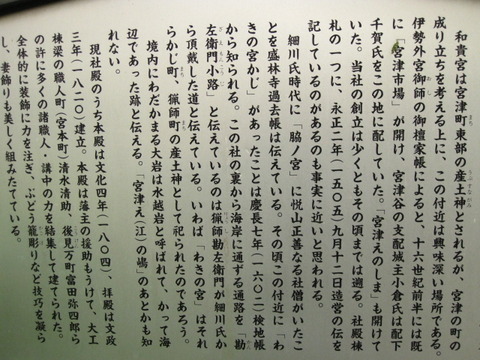 和貴宮は宮津町東部の産土神とされるが、宮津の町の
成り立ちを考える上に、この付近は興味深い場所である。
伊勢外宮御師の御檀家帳によると、十六世紀前半には既
に「宮津市場」が開け、宮津谷の支配城主小倉氏は配下
千賀氏をこの地に配していた。「宮津えのしま」も開けて
いた。当社の創立は少くともその頃までは遡る。社殿棟
札の一つに、永正二年（一五〇五）九月十二日造営の伝を
記しているのがあるのも事実に近いと思われる。
細川氏時代に「脇ノ宮」に悦山正善なる社僧がいたこ
とを盛林寺過去帳は伝えている。その頃この付近に「わ
きの宮かじ」があったことは慶長七年（一六〇二）検地帳
から知られる。この社の裏から海岸に通ずる通路を「勘
左衛門小路」と伝えているのは猟師勘左衛門が細川氏か
ら頂戴した道と伝えている。いわば「わきの宮」はそれ
らかじ町、猟師町の産土神として祀られたのであろう。
境内にわだかまる大岩は水越岩と呼ばれて、かって海
辺であった跡と伝える。「宮津え（江）の嶋」のあとかも知
れない。
現社殿のうち本殿は文化四年（一八〇四）、拝殿は文政
三年（一八二〇）建立。本殿は藩主の援助もうけて、大工
棟梁の職人町（宮本町）清水清助、後見万町冨田弥四郎ら
の許に多くの諸職人・講中の力を結集して建てられた。
全体的に装飾に力を注ぎ、ぶどう籠彫りなど技巧を凝ら
し、妻飾りも美しく組みたてている。